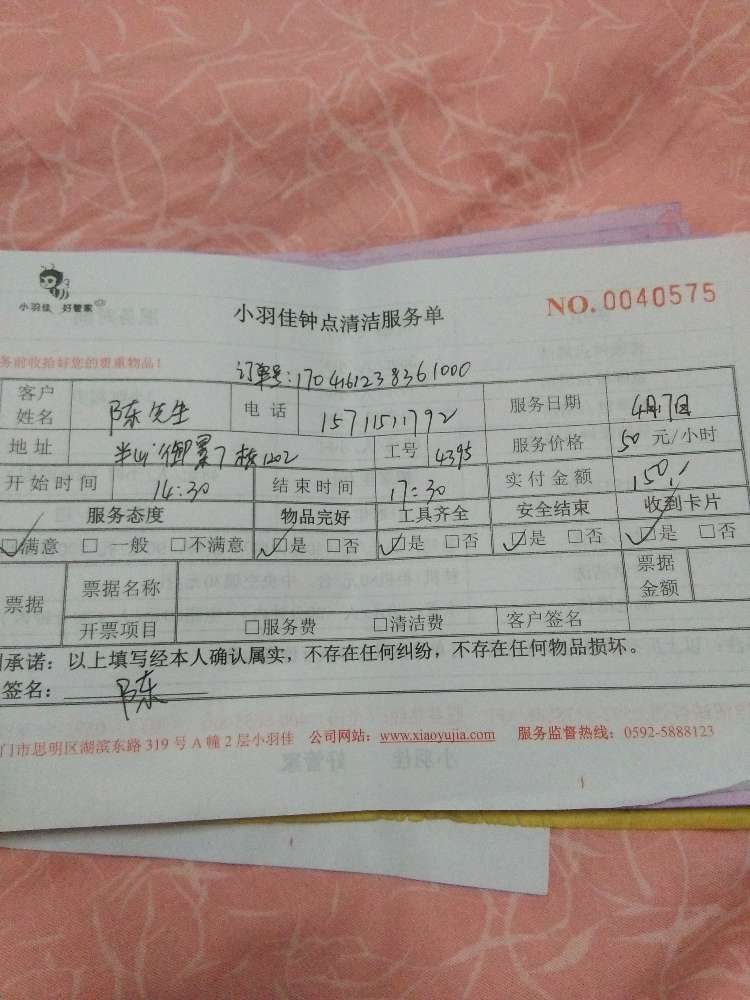 小羽佳 好管家
小羽佳钟点清洁服务单
NO. 0040575
务前收拾好您的贵重物品!
订单号:1704161238361000
客户姓名 陈先生 电话 15711511792 服务日期 4月17日
地址 半山御景7栋1202 工号 4395 服务价格 50 元/小时
开始时间 14:30 结束时间 17:30 实付金额 150/
服务态度 物品完好 工具齐全 安全结束 收到卡片
☑满意 □ 一般 □不满意 ☑是 □否 ☑是 □否 ☑是 □否 ☑是 □否
票据 票据名称 票据金额
开票项目 □服务费 □清洁费 客户签名
承诺:以上填写经本人确认属实,不存在任何纠纷,不存在任何物品损坏。
签名: 陈
门市思明区湖滨东路 319 号 A 幢 2 层小羽佳 公司网站:www.xiaoyujia.com 服务监督热线:0592-5888123